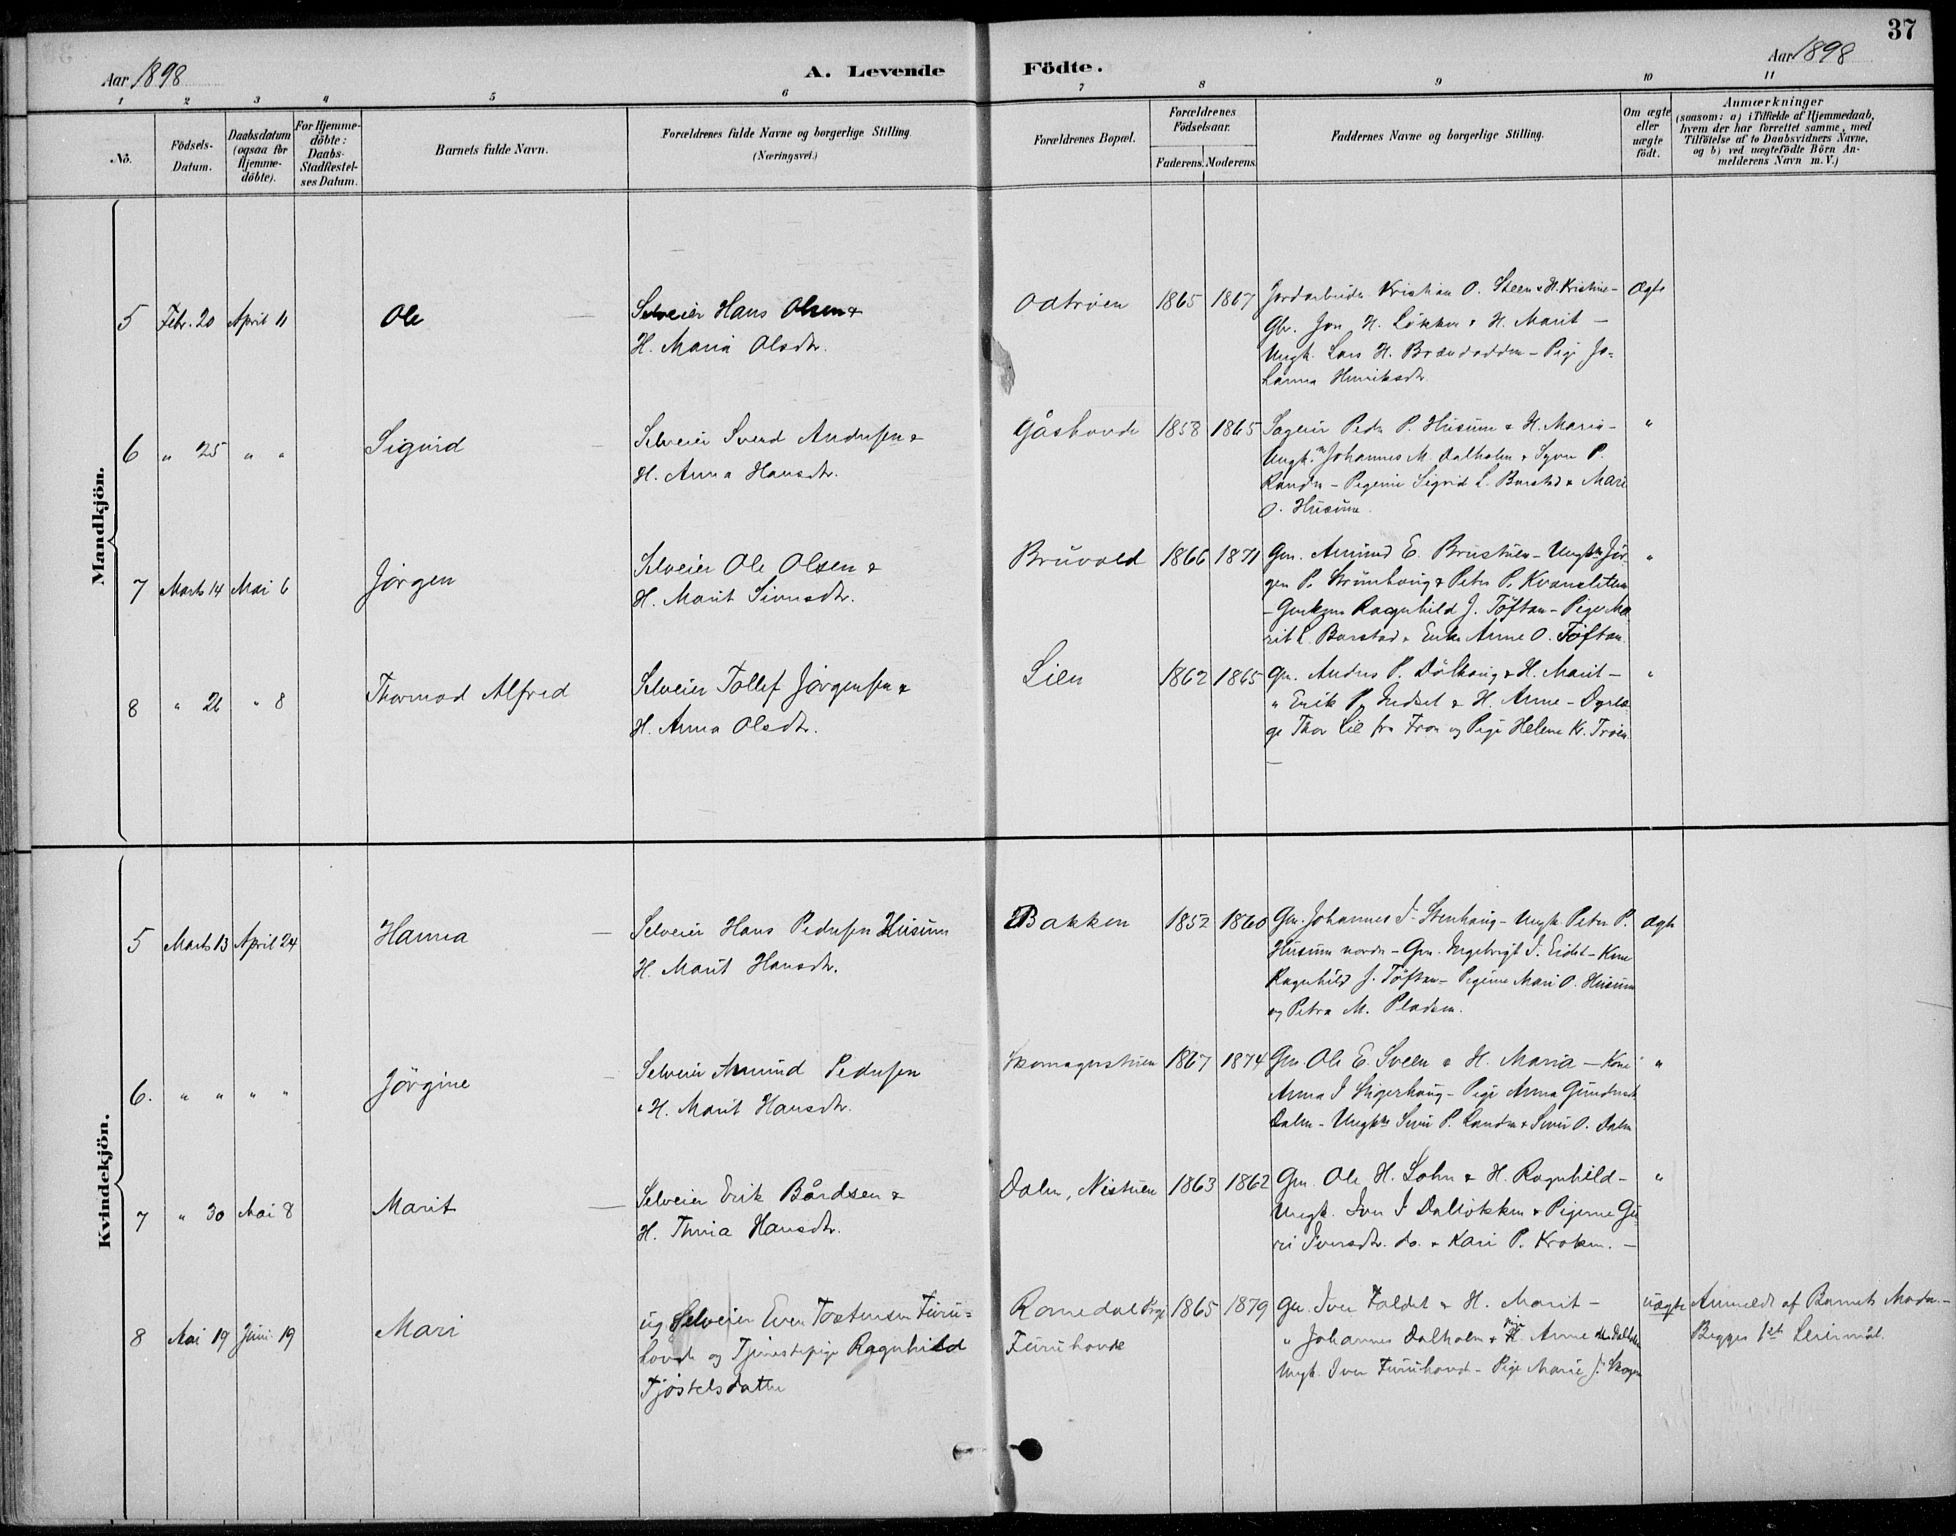 37
Aar 1898
A. Levende Födte.
Aar 1898
1 2 3 4 5 6 7 8 9 10 11
No.
Födsels-
Datum.
Daabsdatum
(ogsaa for
Hjemme-
döbte).
For Hjemme-
döbte:
Daabs-
Stadfæstel-
ses Datum.
Barnets fulde Navn.
Forældrenes fulde Navne og borgerlige Stilling.
(Næringsvei.)
Forældrenes Bopæl.
Forældrenes
Födselsaar.
Faderens. Moderens.
Faddernes Navne og borgerlige Stilling.
Om ægte
eller
uægte
födt.
Anmærkninger
(saasom: a) i Tilfælde af Hjemmedaab,
hvem der har forrettet samme, med
Tilföielse af to Daabsvidners Navne,
og b) ved uægtefödte Börn An-
melderens Navn m. V.)
Mandkjön.
5 Febr. 20 April 11 Ole
Selveier Hans Olsen &
H. Maria Olsdtr.
Odtrøen 1865 1867
Jordarbeider Kristian O. Steen & H. Kristine -
Gbr. Jon H. Løkken & H. Marit -
Ungk. Lars H. Brændadden - Pige Jo-
hanna Henriksdtr.
Ægte
6 " 25 " " Sigurd
Selveier Svend Andersen &
H. Anna Hansdtr.
Gåshovde 1858 1865
Sageier Peder P. Husum & H. Maria -
Ungk. Johannes M. Dalholen & Syver P.
Randen - Pigerne Sigrid L. Borstad & Mari
O. Husum.
"
7 Marts 14 Mai 6 Jørgen
Selveier Ole Olsen &
H. Marit Siversdtr.
Bruvold 1866 1871
Gm. Amund E. Brustuen - Ungkm Jør-
gen P. Strømhaug & Peter P. Kvansliten
- Ragnhild J. Tøftan - Pige Ma-
rit L. Borstad & Enke Anne O. Tøftan.
"
8 " 26 " 8 Thormod Alfred
Selveier Tollef Jørgensen &
H. Anna Olsdtr.
Lien 1862 1865
Gm. Anders P. Dølhaug & H. Marit -
" Erik P. Indset & H. Anne - Dyrlæ-
ge Thor Lie fra Fron og Pige Helene Kr. Trøen.
—
"
Kvindekjön.
5 Marts 13 April 24 Hanna
Selveier Hans Pedersen Husum
H. Marit Hansdtr.
Bakken 1852 1860
Gm. Johannes J. Stenhaug - Ungk. Peter P.
Husum nordre - Gm. Ingebrigt I. Eidet - Kone
Ragnhild J. Tøftan - Pigerne Mari O. Husum
og Petra M. Pladsen.
Ægte
6. " " " " Jørgine
Selveier Amund Pedersen
& H. Marit Hansdtr.
Skomagerstuen 1867 1874
Gm. Ole E. Sveen & H. Maria - Kone
Anna J. Stigerhaug - Pige Anna Gundersdtr
Dalen - Ungkm Siver P. Randen & Siver O. Dalen
"
7 " 30 Mai 8 Marit
Selveier Erik Bårdsen &
H. Thuria Hansdtr.
Dalen, Nistuen 1863 1862
Gm. Ole H. Lohn & H. Ragnhild -
Ungk. Iver I Daløkken & Pigerne Gu-
ri Iversdtr. do. & Kari P. Kroken. -
"
8 Mai 19 Juni 19 Mari
ug Selveier Even Tostensen Furu-
hovde og Tjenestepige Ragnhild
Tjøstelsdatter
Romedal Prgj.
Furuhovde
1865 1879
Gm. Iver Foldet & H. Marit -
" Johannes Dalholen & Pige Anne Dalholen
Ungk. Iver Furuhovd - Pige Marie J. Skogen
Uægte
Anmeldt af Barnets Moder. -
Begges 1ste Leiermål.